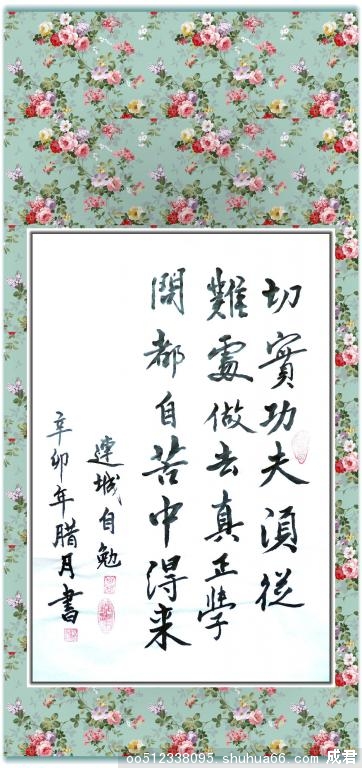 切實功夫須從
難處做去真正學
問都自苦中得来
連城自勉
辛卯年腊月書
oo512338095 shuhua66 com 成君